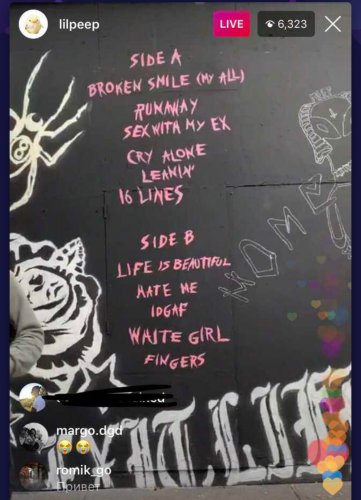 lilpeep
LIVE
6,323
SIDE A
BROKEN SMILE (MY ALL)
RUNAWAY
SEX WITH MY EX
CRY ALONE
LEANIN'
16 LINES
SIDE B
LIFE IS BEAUTIFUL
HATE ME
IDGAF
WHITE GIRL
FINGERS
HOME
margo.dgd
romik_go
Привет